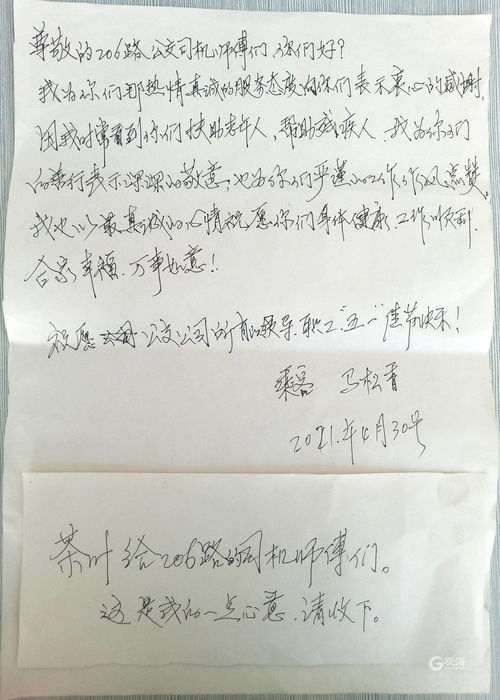 尊敬的206路公交司机师傅们，你们好？
我为你们那热情真诚的服务态度向你们表示衷心的感谢.
因我时常看到你们扶助老年人，帮助残疾人.我为你们
的善行表示深深的敬意，也为你们严谨的工作作风点赞.
我也以最真诚的心情祝愿你们身体健康.工作顺利.
合家幸福.万事如意!!
祝愿 公交公司的所有的领导.职工"五一"佳节快乐!
乘客 马松青
2021.年4月30号
茶叶给206路的司机师傅们。
这是我的一点心意.请收下。
G 观海